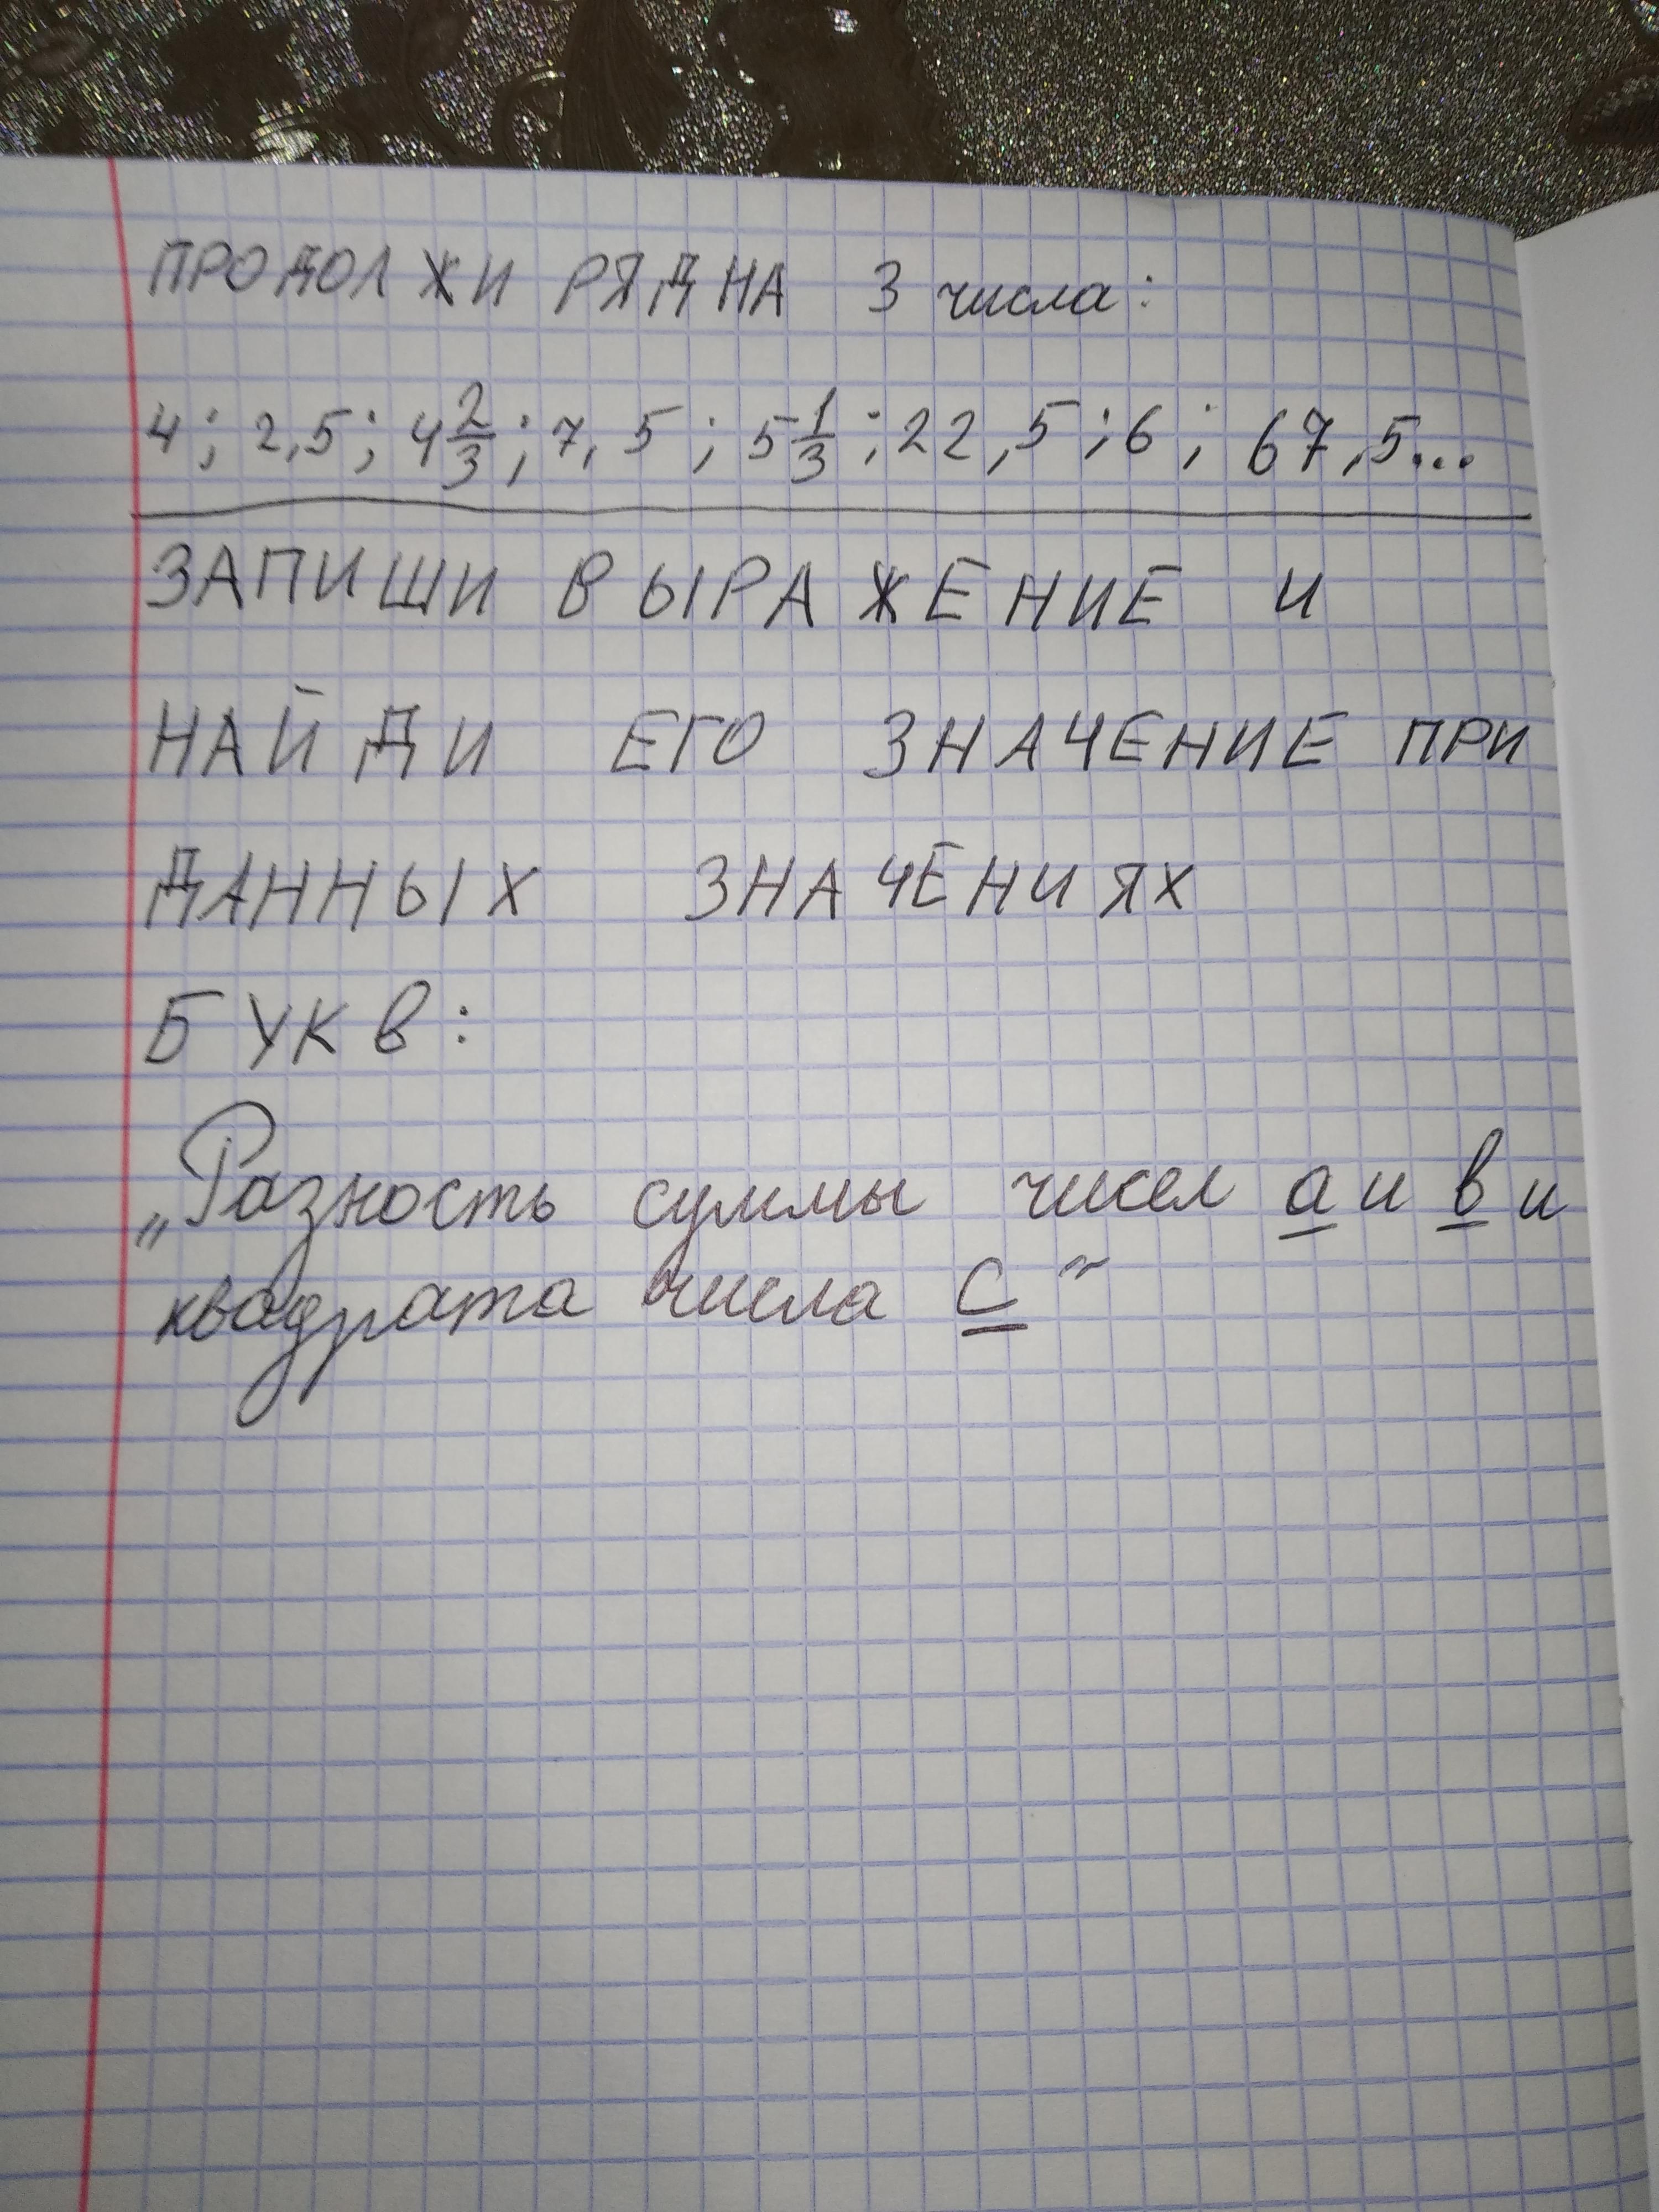 ПРОДОЛЖИ РЯД НА 3 числа:
4; 2,5; 4 2/3; 7,5; 5 1/3; 22,5; 6; 67,5...
ЗАПИШИ ВЫРАЖЕНИЕ И
НАЙДИ ЕГО ЗНАЧЕНИЕ ПРИ
ДАННЫХ ЗНАЧЕНИЯХ
БУКВ:
„Разность суммы чисел а и в и
квадрата числа С"